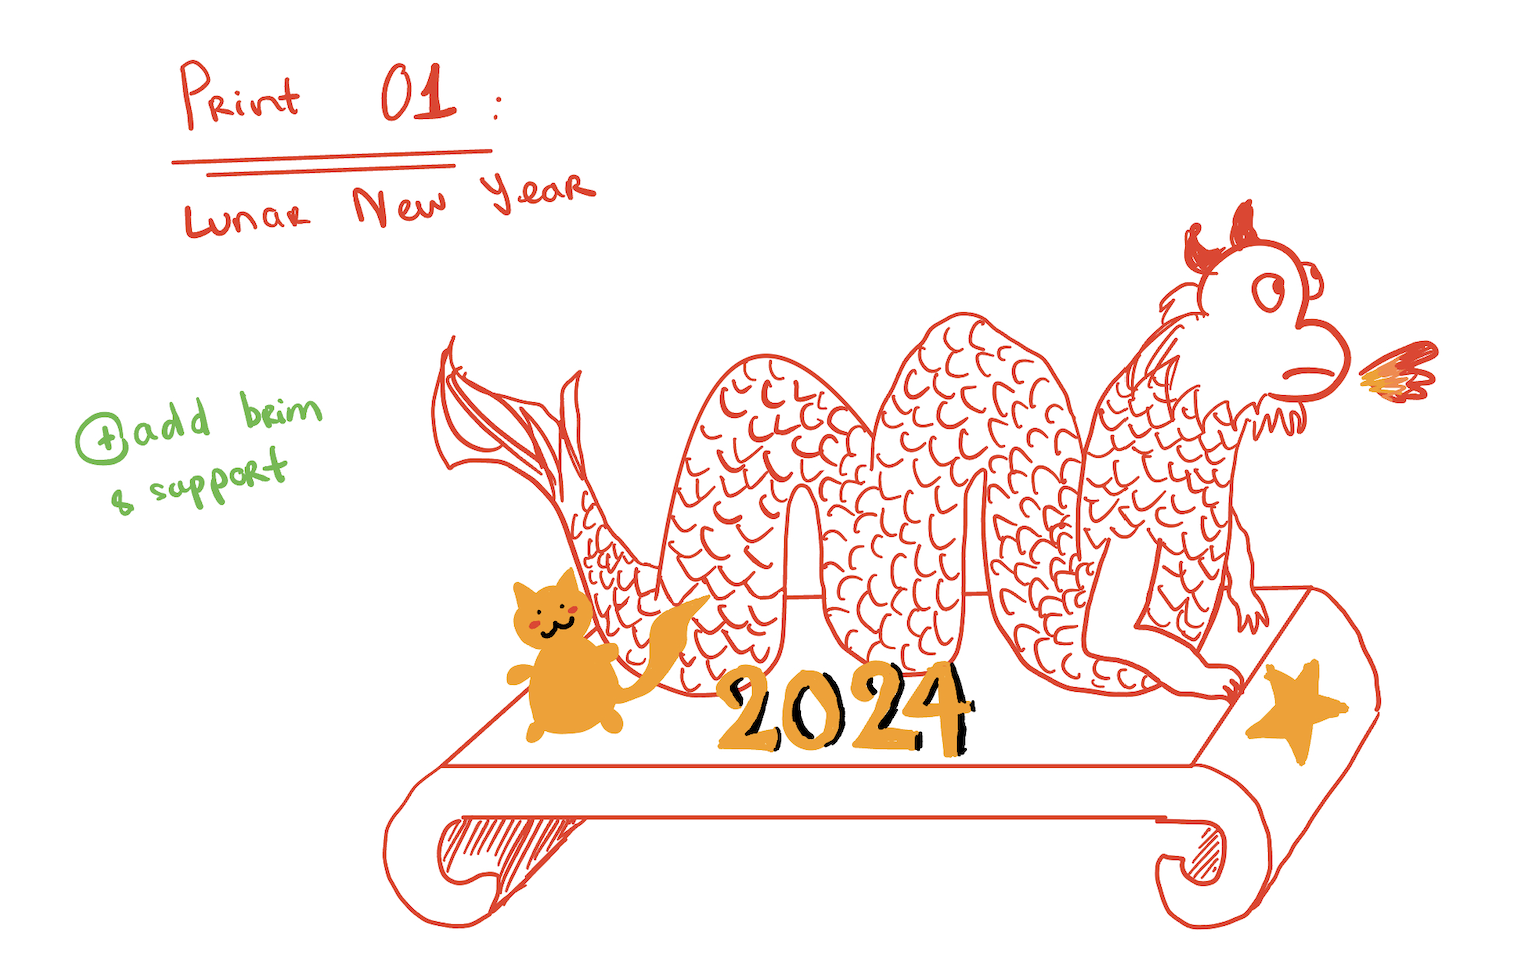 Print 01:
Lunar New Year
+ add brim
& support
2024